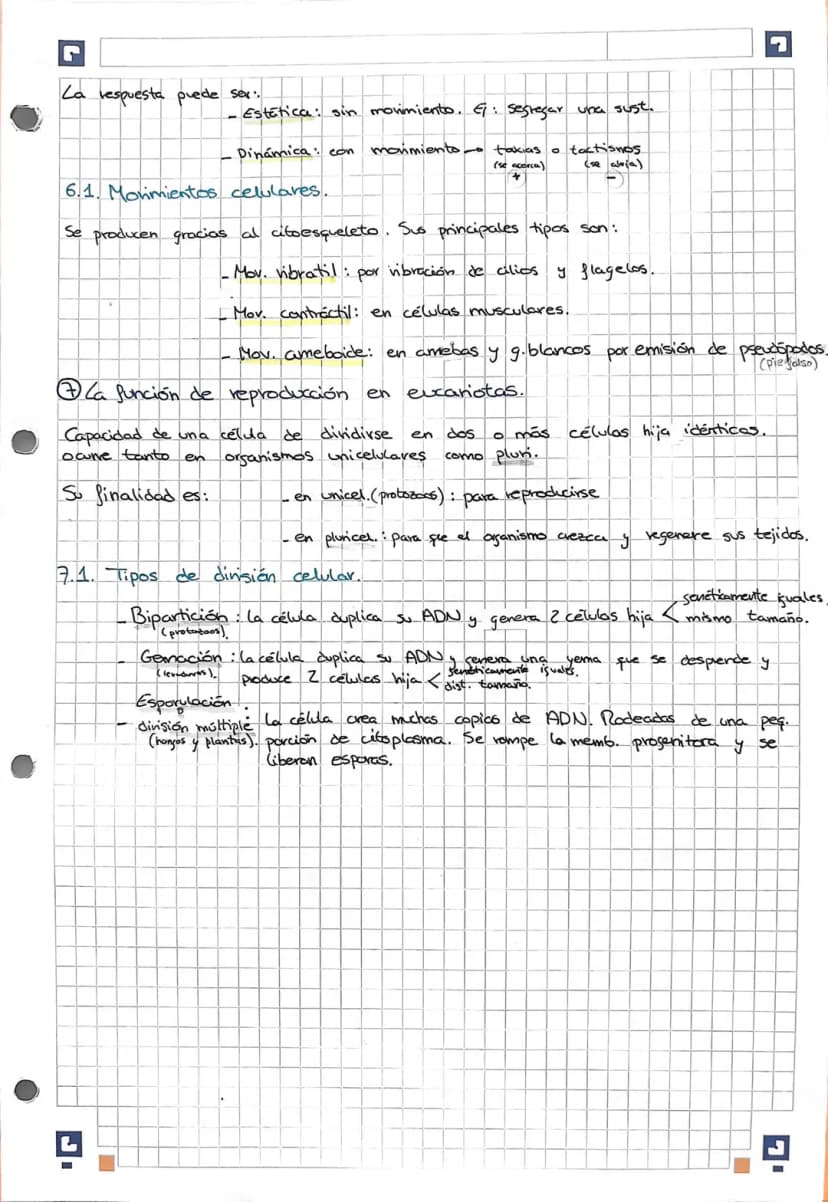 La respuesta puede ser:
- Estética: sin movimiento. Ej: segregar una sust.
- Dinámica: con movimiento → taxias o tactismos
(se acerca) (se aleja)
+ -
6.1. Movimientos celulares.
Se producen gracias al citoesqueleto. Sus principales tipos son:
- Mov. vibratil: por vibración de cilios y flagelos.
- Mov. contráctil: en células musculares.
- Mov. ameboide: en amebas y g.blancos por emisión de pseudópodos.
(pie falso)
7 La función de reproducción en eucariotas.
Capacidad de una célula de dividirse en dos o más células hija idénticas.
ocurre tanto en organismos unicelulares como pluri.
Su finalidad es: - en unicel.(protozoos): para reproducirse
- en pluricel.: para que el organismo crezca y regenere sus tejidos.
7.1. Tipos de división celular.
genéticamente iguales.
- Bipartición: la célula duplica su ADN y genera 2 células hija < mismo tamaño.
(protozoos)
- Gemación: la célula duplica su ADN y genera una yema que se desprende y
(levaduras). produce 2 células hija < genéticamente iguales.
dist. tamaño.
Esporulación
- división múltiple: la célula crea muchas copias de ADN. Rodeadas de una peq.
(hongos y plantas). porción de citoplasma. Se rompe la memb. progenitora y se
liberan esporas.